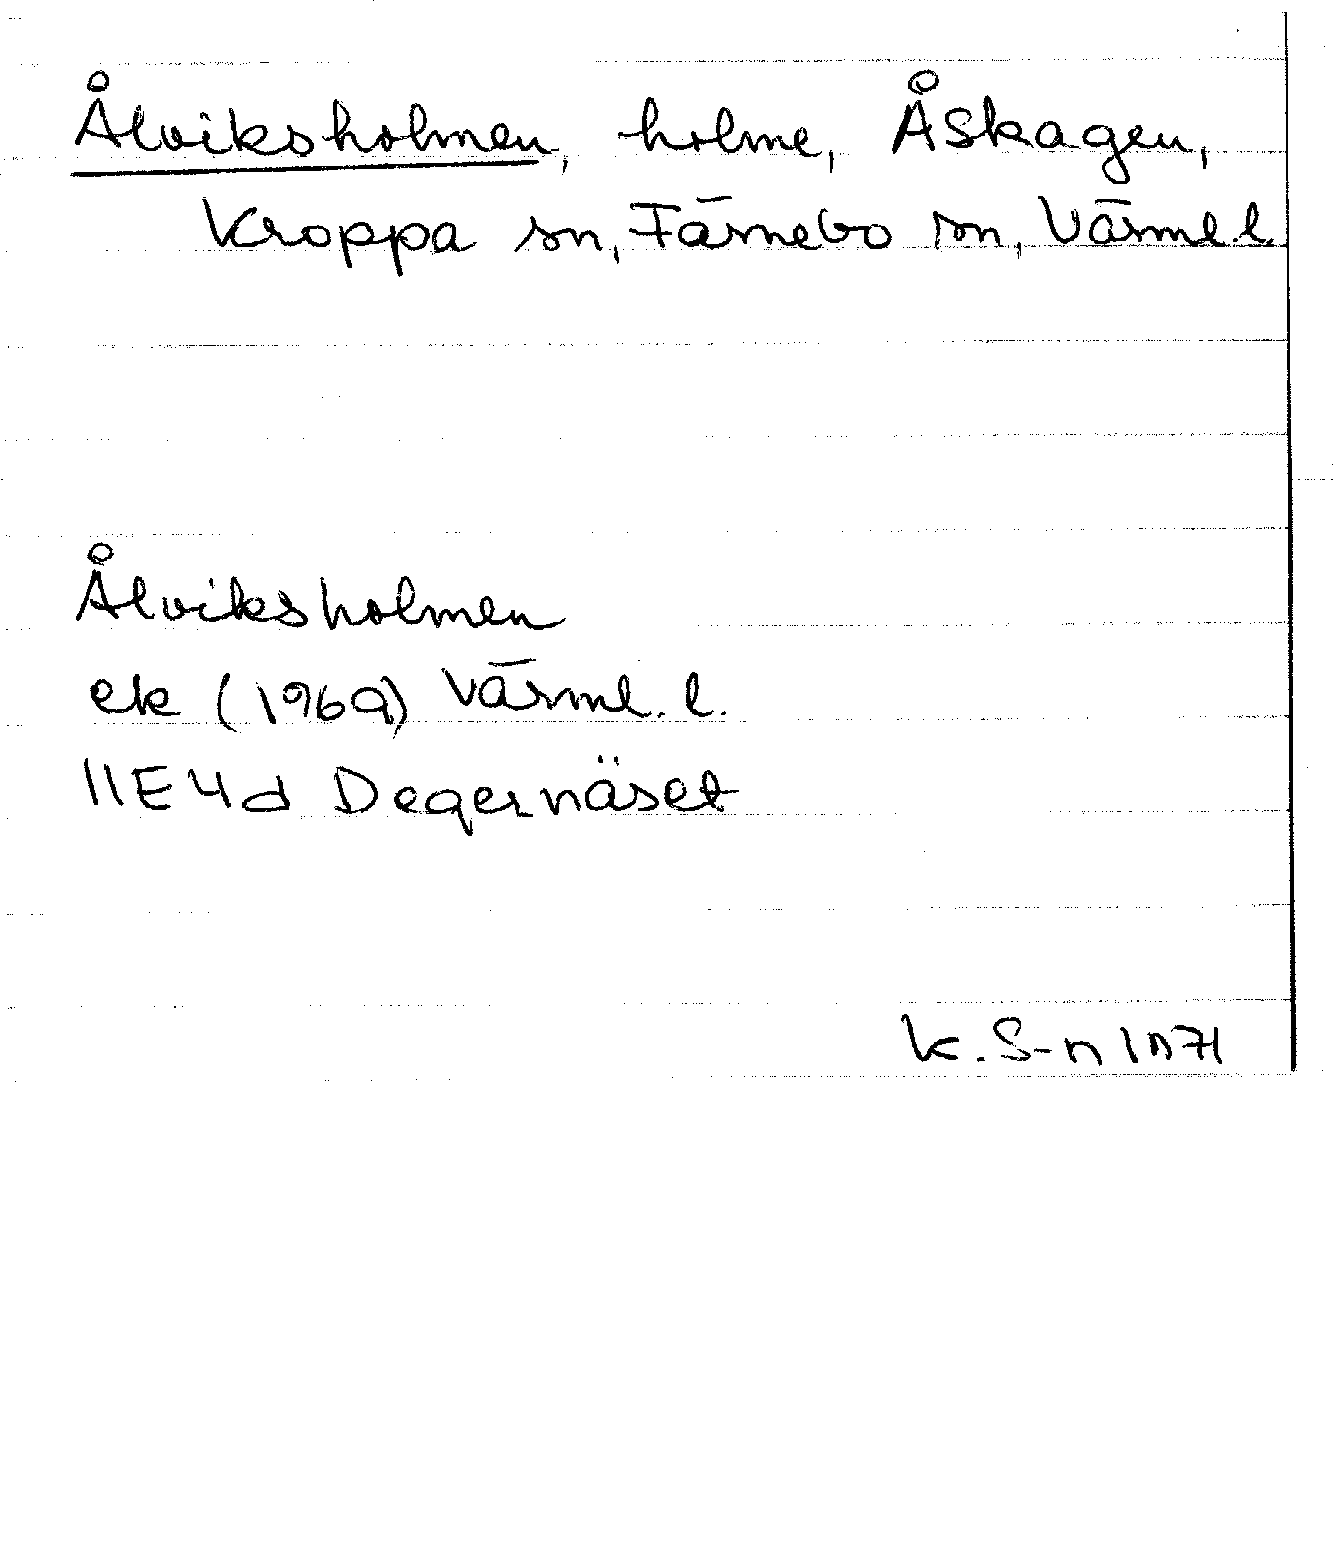 Ålviksholmen, holme, Åskagen,
Kroppa sn, Färnebo sn, Värml. l.
Ålviksholmen
ek (1969) Värml. l.
11E4d Degernäset
K. S-n